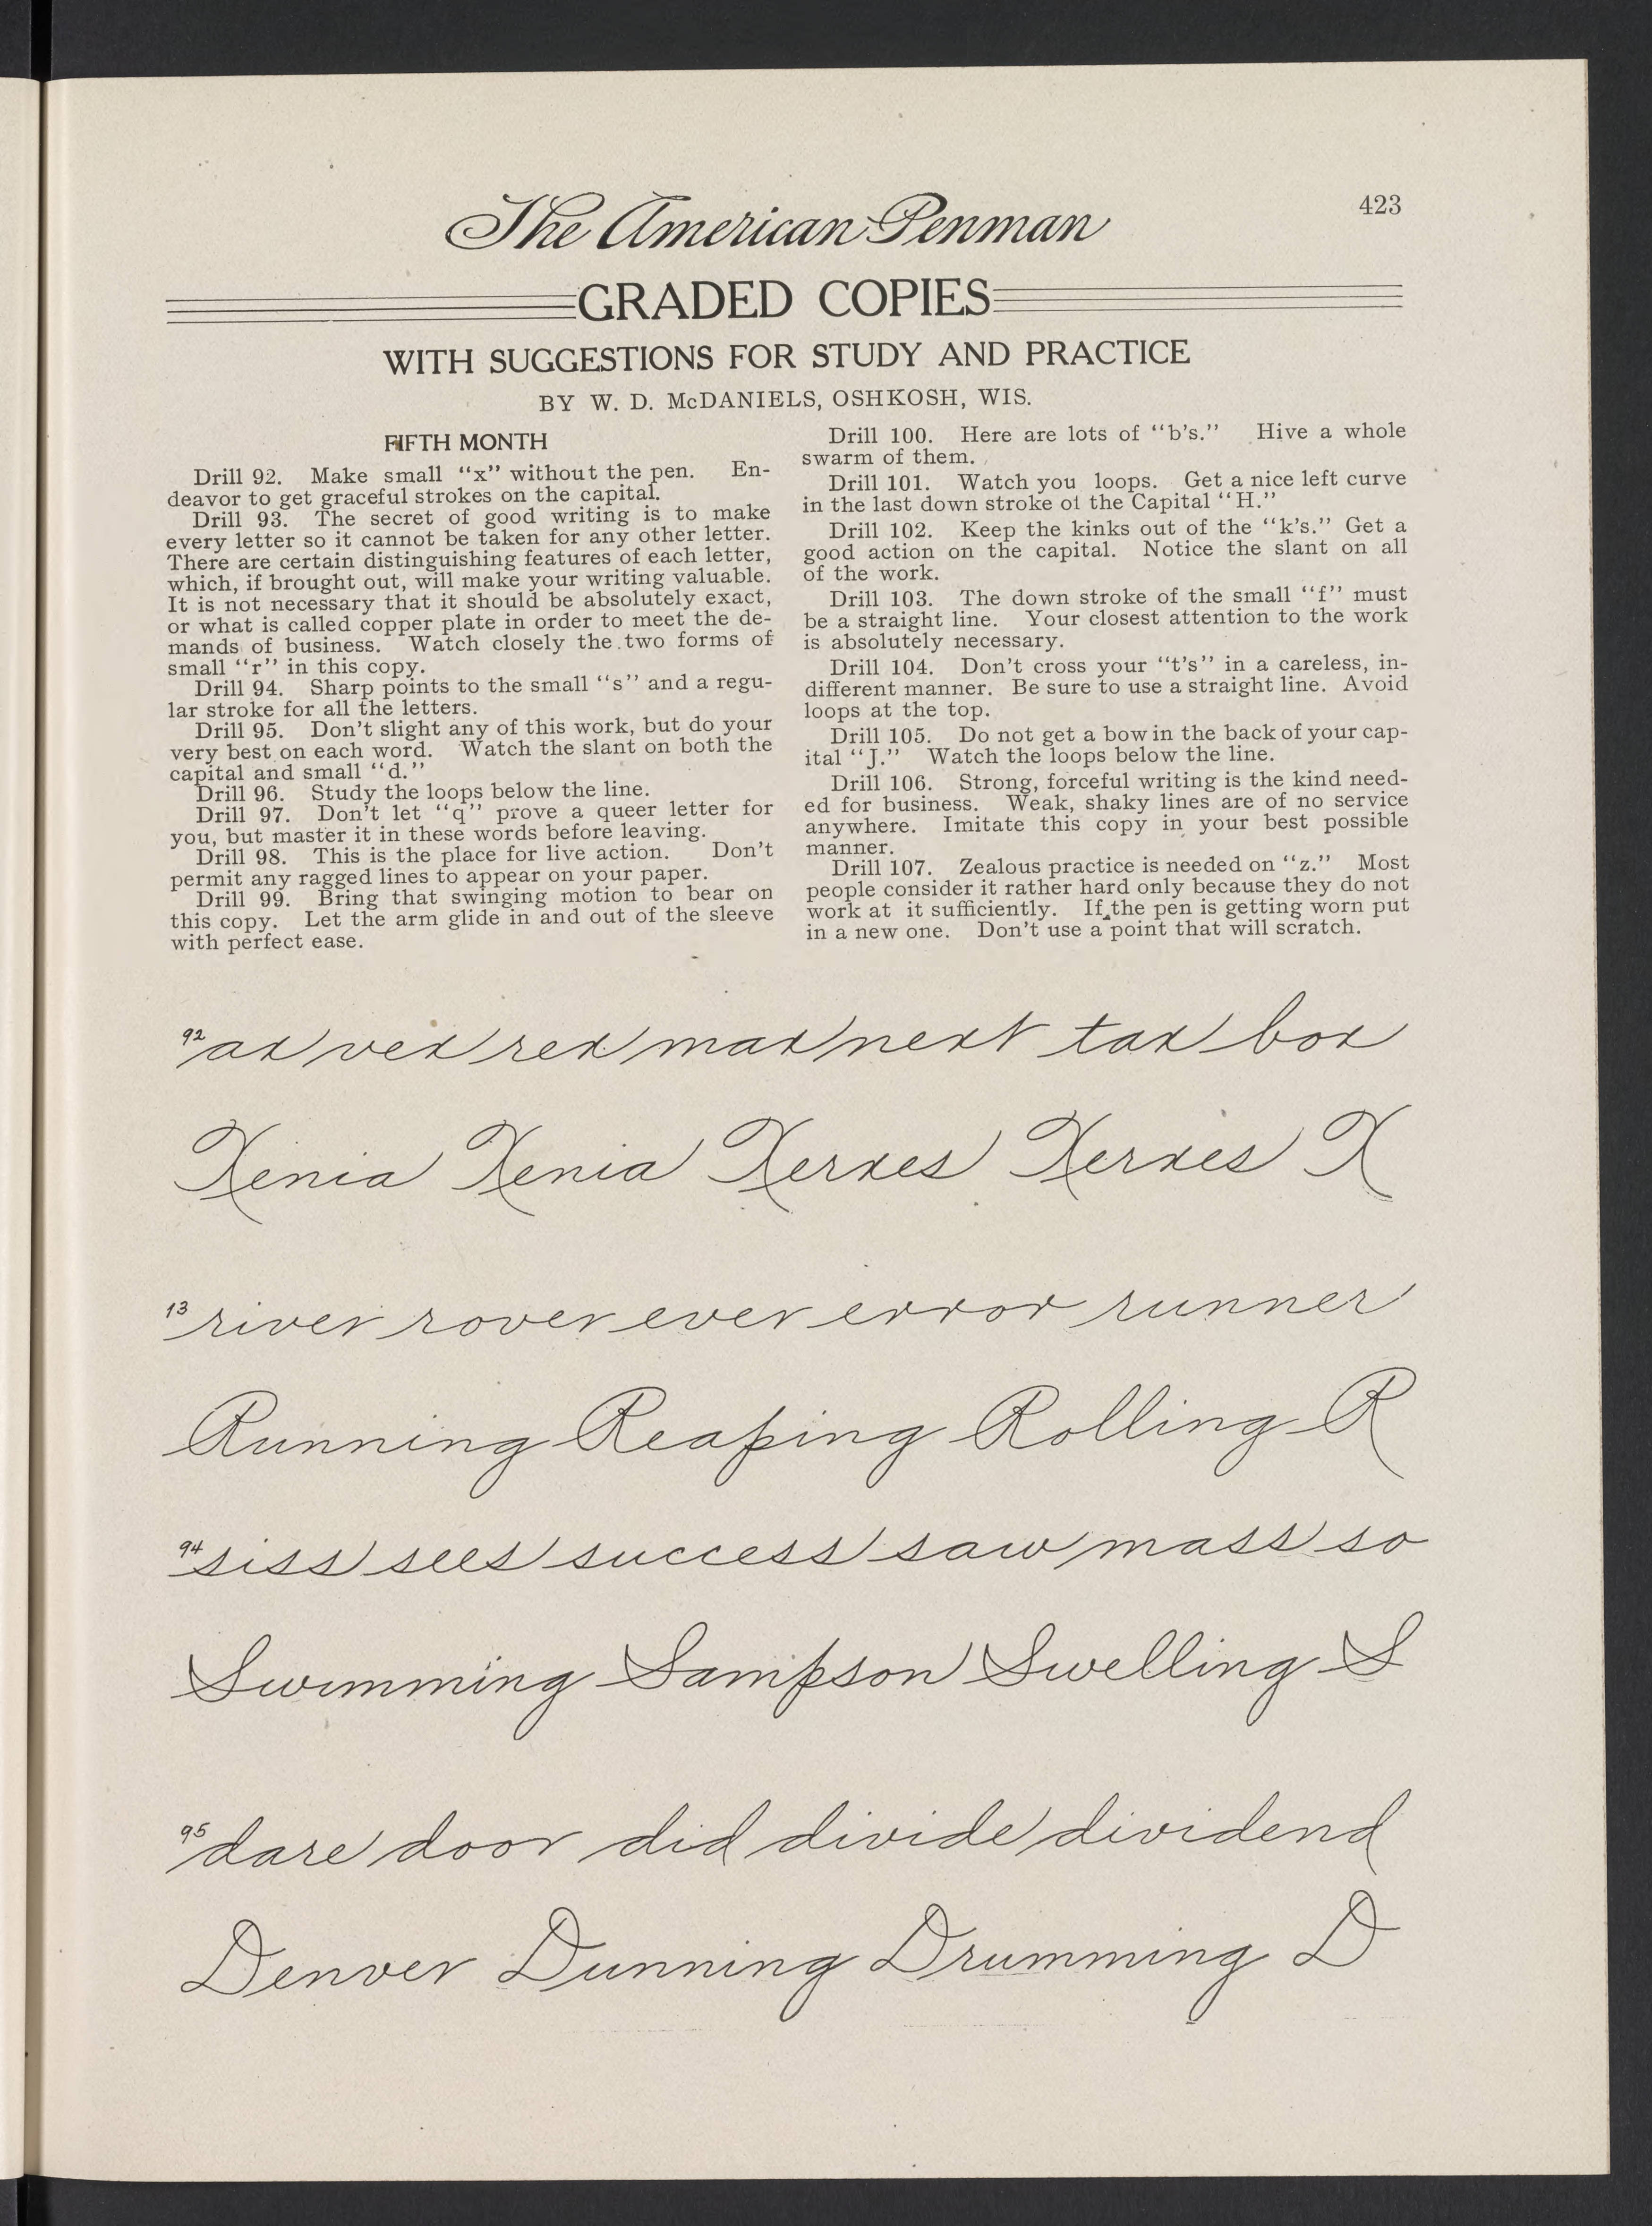 The American Penman
423
GRADED COPIES
WITH SUGGESTIONS FOR STUDY AND PRACTICE
BY W. D. McDANIELS, OSHKOSH, WIS.
FIFTH MONTH
Drill 92. Make small "x" without the pen. En-
deavor to get graceful strokes on the capital.
Drill 93. The secret of good writing is to make
every letter so it cannot be taken for any other letter.
There are certain distinguishing features of each letter,
which, if brought out, will make your writing valuable.
It is not necessary that it should be absolutely exact,
or what is called copper plate in order to meet the de-
mands of business. Watch closely the two forms of
small "r" in this copy.
Drill 94. Sharp points to the small "s" and a regu-
lar stroke for all the letters.
Drill 95. Don't slight any of this work, but do your
very best on each word. Watch the slant on both the
capital and small "d."
Drill 96. Study the loops below the line.
Drill 97. Don't let "q" prove a queer letter for
you, but master it in these words before leaving.
Drill 98. This is the place for live action. Don't
permit any ragged lines to appear on your paper.
Drill 99. Bring that swinging motion to bear on
this copy. Let the arm glide in and out of the sleeve
with perfect ease.
Drill 100. Here are lots of "b's." Hive a whole
swarm of them.
Drill 101. Watch you loops. Get a nice left curve
in the last down stroke of the Capital "H."
Drill 102. Keep the kinks out of the "k's." Get a
good action on the capital. Notice the slant on all
of the work.
Drill 103. The down stroke of the small "f" must
be a straight line. Your closest attention to the work
is absolutely necessary.
Drill 104. Don't cross your "t's" in a careless, in-
different manner. Be sure to use a straight line. Avoid
loops at the top.
Drill 105. Do not get a bow in the back of your cap-
ital "J." Watch the loops below the line.
Drill 106. Strong, forceful writing is the kind need-
ed for business. Weak, shaky lines are of no service
anywhere. Imitate this copy in your best possible
manner.
Drill 107. Zealous practice is needed on "z." Most
people consider it rather hard only because they do not
work at it sufficiently. If the pen is getting worn put
in a new one. Don't use a point that will scratch.
92 ax vex rex max next tax box
Xenia Xenia Xerxes Xerxes X
13 river rover ever error runner
Running Reaping Rolling R
94 siss sees success saw mass so
Swimming Sampson Swelling S
95 dare door did divide dividend
Denver Dunning Drumming D